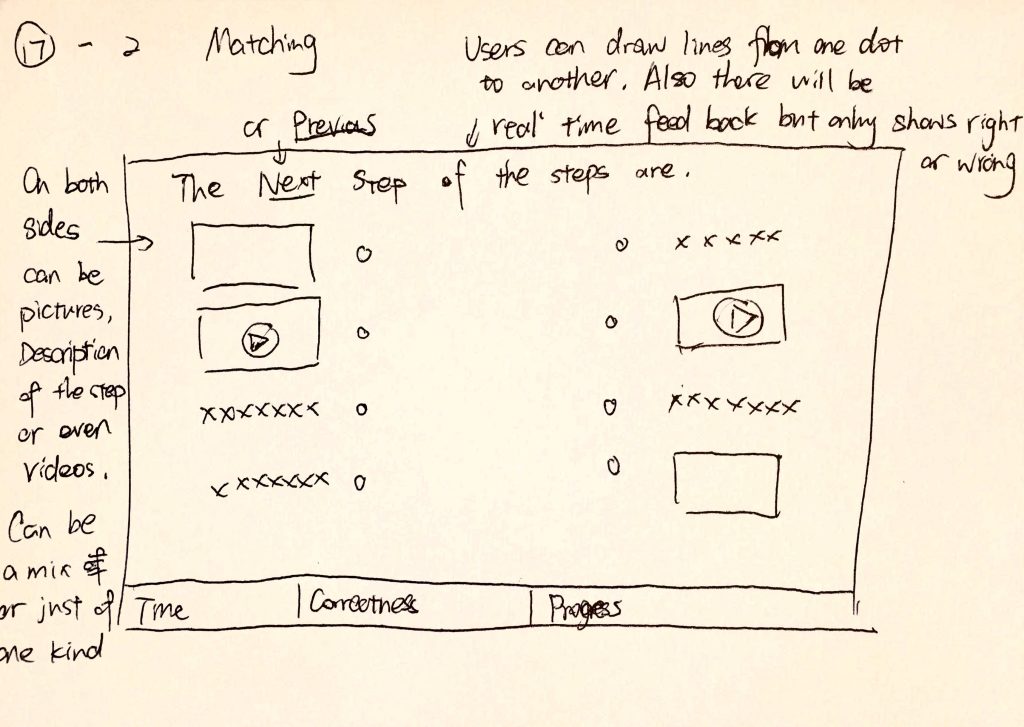 17 - 2 Matching
Users can draw lines from one dot
to another. Also there will be
real time feed back but only shows right
or wrong
or Previous
The Next Step of the steps are.
On both
sides
can be
pictures,
Description
of the step
or even
videos.
Can be
a mix of
or just of
one kind
x x x x x
xxxxxxx
xxxxxxx
xxxxxxx
Time
Correctness
Progress